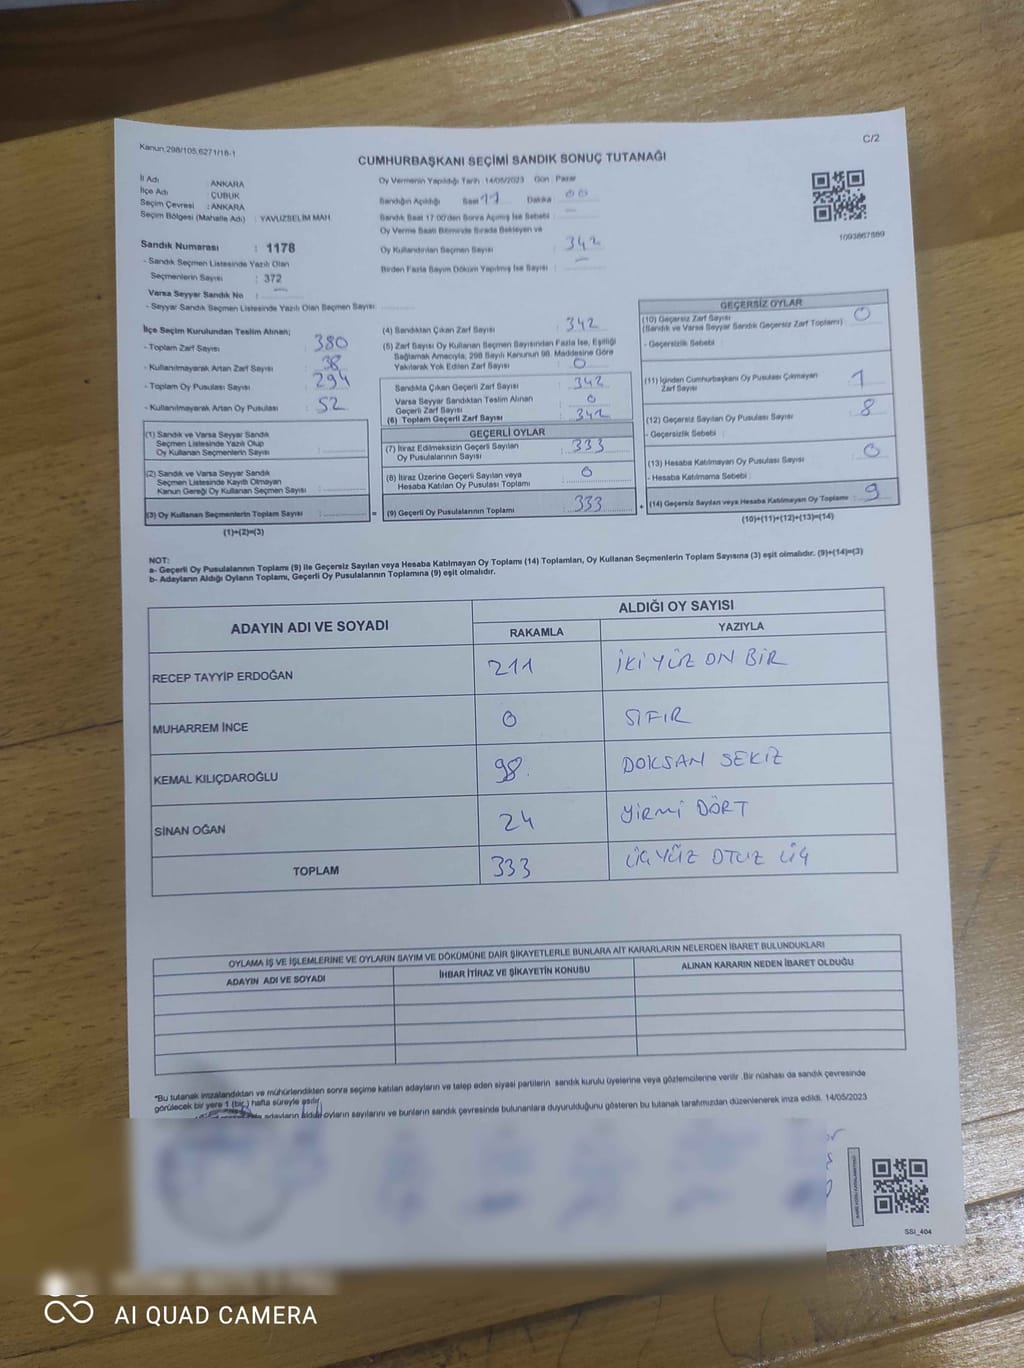 Kanun,298/105,6271/18-1
C/2
CUMHURBAŞKANI SEÇİMİ SANDIK SONUÇ TUTANAĞI
İl Adı : ANKARA
İlçe Adı : ÇUBUK
Seçim Çevresi : ANKARA
Seçim Bölgesi (Mahalle Adı) : YAVUZSELİM MAH.
Sandık Numarası : 1178
- Sandık Seçmen Listesinde Yazılı Olan
Seçmenlerin Sayısı : 372
Varsa Seyyar Sandık No : –
- Seyyar Sandık Seçmen Listesinde Yazılı Olan Seçmen Sayısı:
Oy Vermenin Yapıldığı Tarih :14/05/2023 Gün : Pazar
Sandığın Açıldığı Saat 17 Dakika 00
Sandık Saat 17:00'den Sonra Açılmış İse Sebebi : –
Oy Verme Saati Bitiminde Sırada Bekleyen ve
Oy Kullandırılan Seçmen Sayısı : 342
Birden Fazla Sayım Döküm Yapılmış İse Sayısı : –
1093867889
İlçe Seçim Kurulundan Teslim Alınan;
- Toplam Zarf Sayısı : 380
- Kullanılmayarak Artan Zarf Sayısı : 38
- Toplam Oy Pusulası Sayısı : 294
- Kullanılmayarak Artan Oy Pusulası : 52
(1) Sandık ve Varsa Seyyar Sandık
Seçmen Listesinde Yazılı Olup
Oy Kullanan Seçmenlerin Sayısı :
(2) Sandık ve Varsa Seyyar Sandık
Seçmen Listesinde Kayıtlı Olmayan
Kanun Gereği Oy Kullanan Seçmen Sayısı :
(3) Oy Kullanan Seçmenlerin Toplam Sayısı :
(1)+(2)=(3)
(4) Sandıktan Çıkan Zarf Sayısı : 342
(5) Zarf Sayısı Oy Kullanan Seçmen Sayısından Fazla İse, Eşitliği
Sağlamak Amacıyla, 298 Sayılı Kanunun 98. Maddesine Göre
Yakılarak Yok Edilen Zarf Sayısı : 0
Sandıkta Çıkan Geçerli Zarf Sayısı : 342
Varsa Seyyar Sandıktan Teslim Alınan
Geçerli Zarf Sayısı : 0
(6) Toplam Geçerli Zarf Sayısı : 342
GEÇERLİ OYLAR
(7) İtiraz Edilmeksizin Geçerli Sayılan
Oy Pusulalarının Sayısı : 333
(8) İtiraz Üzerine Geçerli Sayılan veya
Hesaba Katılan Oy Pusulası Toplamı : 0
= (9) Geçerli Oy Pusulalarının Toplamı : 333
GEÇERSİZ OYLAR
(10) Geçersiz Zarf Sayısı : 0
(Sandık ve Varsa Seyyar Sandık Geçersiz Zarf Toplamı)
- Geçersizlik Sebebi :
(11) İçinden Cumhurbaşkanı Oy Pusulası Çıkmayan
Zarf Sayısı : 1
(12) Geçersiz Sayılan Oy Pusulası Sayısı : 8
- Geçersizlik Sebebi :
(13) Hesaba Katılmayan Oy Pusulası Sayısı : 0
- Hesaba Katılmama Sebebi :
+ (14) Geçersiz Sayılan veya Hesaba Katılmayan Oy Toplamı : 9
(10)+(11)+(12)+(13)=(14)
NOT:
a- Geçerli Oy Pusulalarının Toplamı (9) ile Geçersiz Sayılan veya Hesaba Katılmayan Oy Toplamı (14) Toplamları, Oy Kullanan Seçmenlerin Toplam Sayısına (3) eşit olmalıdır. (9)+(14)=(3)
b- Adayların Aldığı Oyların Toplamı, Geçerli Oy Pusulalarının Toplamına (9) eşit olmalıdır.
ADAYIN ADI VE SOYADI
ALDIĞI OY SAYISI
RAKAMLA YAZIYLA
RECEP TAYYİP ERDOĞAN 211 İKİ YÜZ ON BİR
MUHARREM İNCE 0 SIFIR
KEMAL KILIÇDAROĞLU 98 DOKSAN SEKİZ
SİNAN OĞAN 24 YİRMİ DÖRT
TOPLAM 333 ÜÇ YÜZ OTUZ ÜÇ
OYLAMA İŞ VE İŞLEMLERİNE VE OYLARIN SAYIM VE DÖKÜMÜNE DAİR ŞİKAYETLERLE BUNLARA AİT KARARLARIN NELERDEN İBARET BULUNDUKLARI
ADAYIN ADI VE SOYADI İHBAR İTİRAZ VE ŞİKAYETİN KONUSU ALINAN KARARIN NEDEN İBARET OLDUĞU
*Bu tutanak imzalandıktan ve mühürlendikten sonra seçime katılan adayların ve talep eden siyasi partilerin sandık kurulu üyelerine veya gözlemcilerine verilir .Bir nüshası da sandık çevresinde
görülecek bir yere 1 (bir) hafta süreyle asılır.
adayların aldığı oyların sayılarını ve bunların sandık çevresinde bulunanlara duyurulduğunu gösteren bu tutanak tarafımızdan düzenlenerek imza edildi. 14/05/2023
SSİ_404
AI QUAD CAMERA